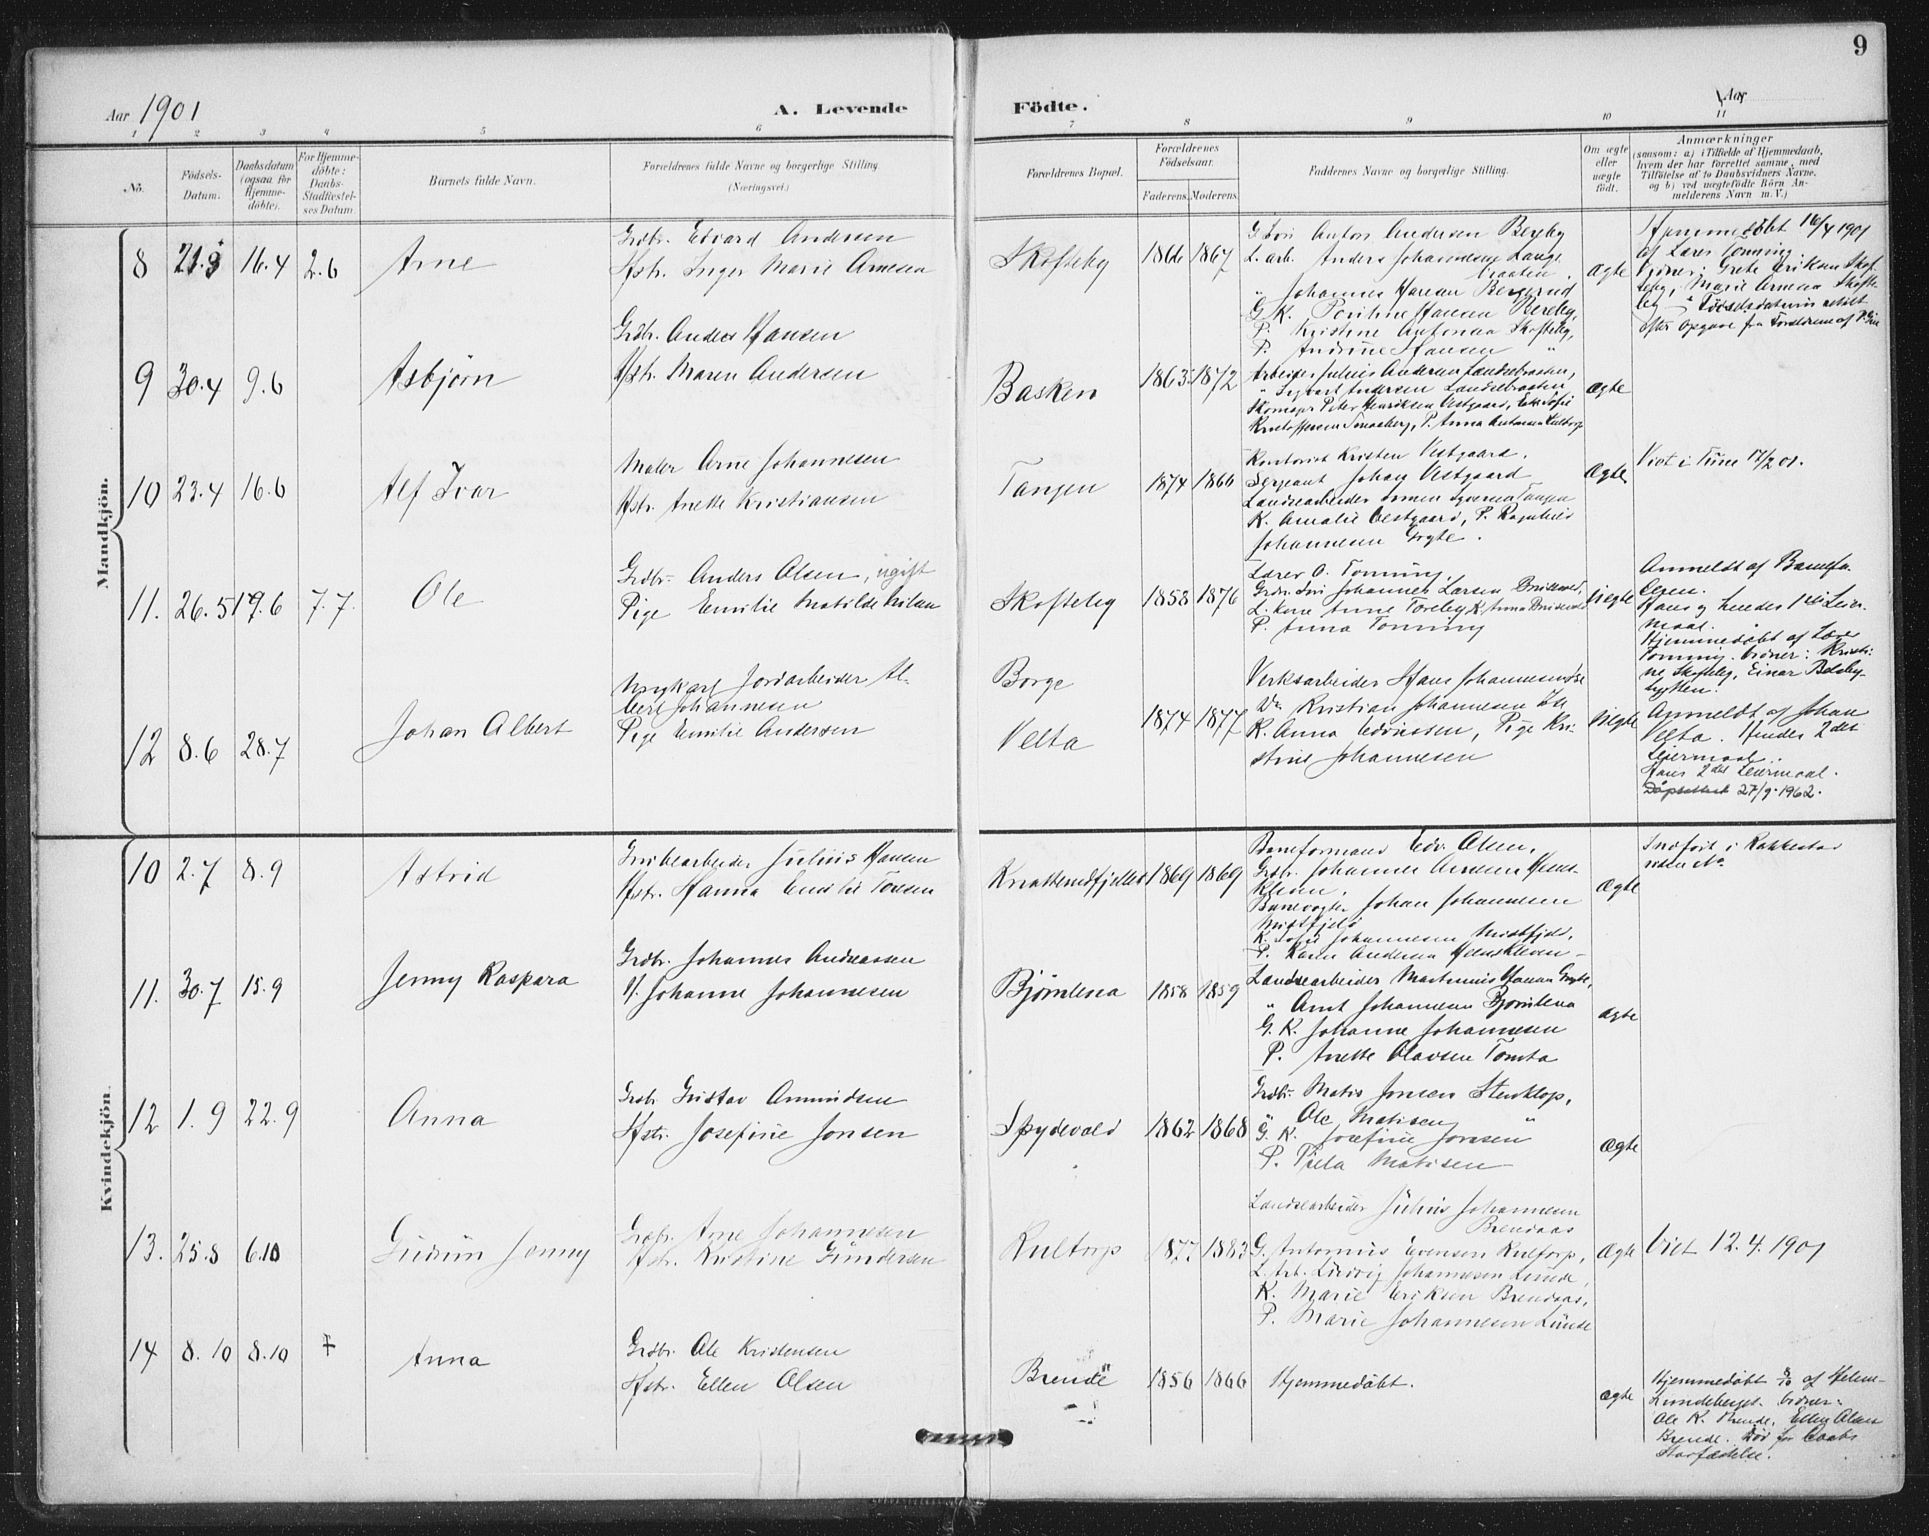 9
Aar 1901
A. Levende
Födte.
Aar
1 2 3 4 5 6 7 8 9 10 11
No.
Födsels-
Datum.
Daabsdatum
(ogsaa for
Hjemme-
döbte).
For Hjemme-
döbte:
Daabs-
Stadfæstel-
ses Datum
Barnets fulde Navn.
Forældrenes fulde Navne og borgerlige Stilling
(Næringsvei.)
Forældrenes Bopæl.
Forældrenes
Födselsaar.
Faderens.
Moderens.
Faddernes Navne og borgerlige Stilling.
Om ægte
eller
uægte
födt.
Anmærkninger
(saasom: a) i Tilfælde af Hjemmedaab,
hvem der har forrettet samme, med
Tilföielse af to Daabsvidners Navne,
og b) ved uægtefödte Börn An-
melderens Navn m. V.)
Mandkjön.
8 21.3 16.4 2.6 Arne
Grdbr. Edvard Andersen
Hstr. Inger Marie Arnesen
Skofteby 1866 1867
G. Søn Anton Andersen Bergby
L. arb. Anders Johannesen Lange-
braaten.
" Johannes Hansen Bergerud
G. K. Hansen
P. Kristine Antonsen Skofteby,
P. Andrine Hansen "
ægte
Hjemmedøbt 16/4 1901
af Lærer Tonning
Vidner: Grete Eriksen Skof-
teby, Marie Arnesen Skofte-
by - Fødselsdatum rettet
efter Opgave fra Forældrene af
9 30.4 9.6 Asbjørn
Grdbr. Anders Hansen
Hstr. Maren Andersen
Basken 1863 1872
Arbeider Julius Andersen Landsebraaten,
" Andersen Landsebraaten,
Skomager Peter Henriksen Vestgaard,
Kristoffersen P. Anna Antonsen Kultorp
ægte
10 23.4 16.6 Alf Ivar
Maler Arne Johannesen
Hstr. Anette Kristiansen
Tangen 1874 1866
Kristen Vestgaard.
Sergeant Johan Vestgaard
Landsearbeider Syversen Tangen
K. Amalie Vestgaard, P. Ragnhild
Johannesen Gryte.
Ægte
Viet i Tune 17/2 01.
11. 26.5 19.6 7.7. Ole
Grdbr. Anders Olsen, ugift
Pige Emilie Matilde Nilsen
Skofteby 1858 1876
Lærer O. Tonning,
Grdbr. Søn Johannes Larsen
L. kone Anne Toreby K. Anna
P. Anna Tonning
Uægte
Anmeldt af Barnefa-
deren.
Hans og hendes 1ste Leier-
maal.
Hjemmedøbt af Lærer
Tonning. Vidner: Kristi-
ne Skofteby, Einar
12 8.6 28.7 Johan Albert
Ungkarl Jordarbeider Al-
bert Johannesen
Pige Emilie Andersen
Borge
Velta 1874 1877
Verksarbeider Hans Johannesen
Kristian Johannesen
K. Anna Pige Kri-
stine Johannesen
Uægte
Anmeldt af Johan
Velta. Hendes 2det
Leiermaal.
Hans 2det Leiermaal.
Dåpsattest 27/9.1962.
Kvindekjön.
10 2.7 8.9 Astrid
Grubearbeider Julius Hansen
Hstr. Hanna Emilie Toresen
Knatterudfjellet 1869 1869
Baneformand Edv. Olsen,
Grdbr. Johannes Andersen Hens-
kleven.
Banevogter Johan Johannesen
Midtfjeld
K. Johannesen Midtfjeld,
P. Karen Andersen Henskleven
Ægte
Indført i Rakkestad
uden No
11. 30.7 15.9 Jenny Kaspara
Grdbr. Johannes Andreassen
H. Johanne Johannesen
Bjørnlena 1858 1859
Landsearbeider Martinius Hansen Gryte,
" Arnt Johannesen Bjørnlena
G. K. Johanne Johannesen
P. Anette Olavsen Tomta
ægte
12 1.9 22.9 Anna
Grdbr. Gustav Amundsen
Hstr. Josefine Jonsen
Spydevold 1862 1868
Grdbr. Matis Jonsen Stenklop,
" Ole Matisen "
G. K. Josefine Jonsen "
P. Matisen
Ægte
13. 25.8 6.10 Gudrun Jenny
Grdbr. Arne Johannesen
Hstr. Kristine Gundersen
Kultorp 1877 1882
Landsearbeider Julius Johannesen
Brendaas
G. Antonius Evensen Kultorp,
L. Arb. Ludvig Johannesen Lunde,
K. Marie Eriksen Brendaas,
P. Marie Johannesen Lunde
Ægte
Viet 12.4.1901
14 8.10 8.10 † Anna
Grdbr. Ole Kristensen
Hstr. Ellen Olsen
Brende 1856 1866
Hjemmedøbt.
Ægte
Hjemmedøbt 8/10 af Helene
Lundeberget. Vidner:
Ole K. Brende, Ellen Olsen
Brende. Død før Daabs
Stadfæstelse.